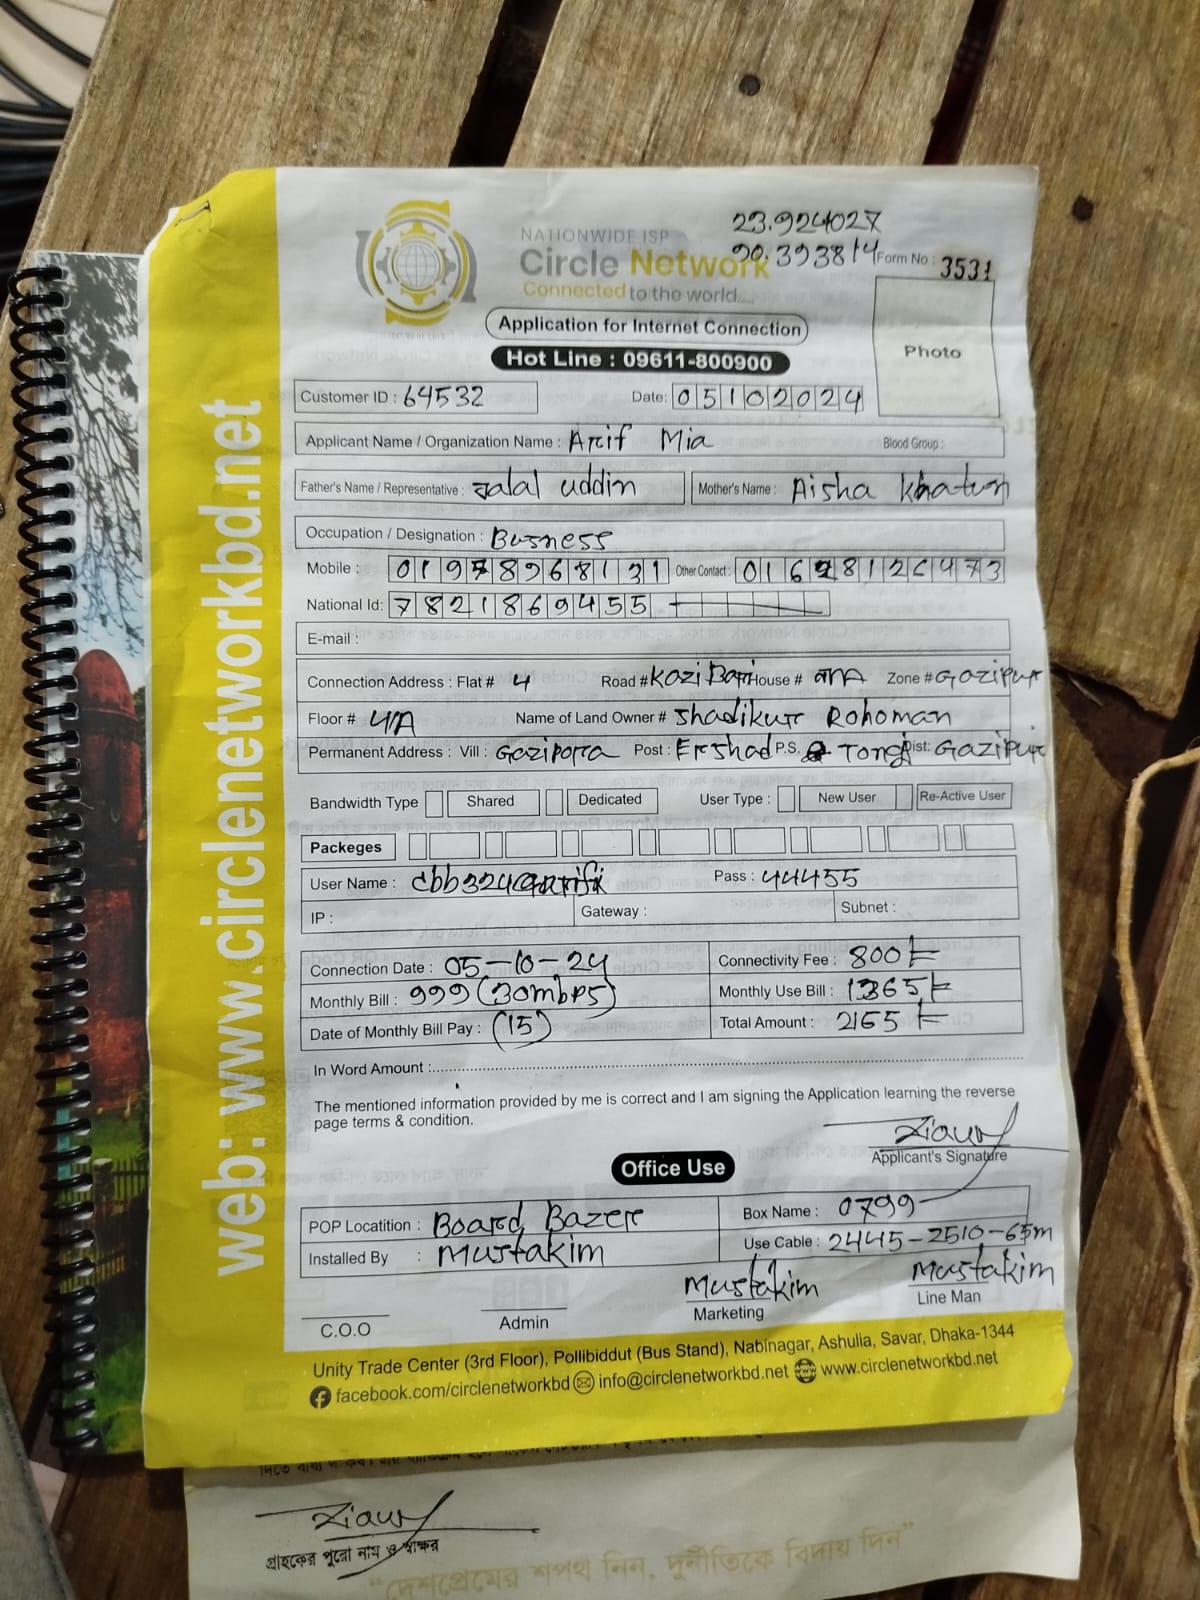 23.924027
90.393814
NATIONWIDE ISP
Circle Network
Connected to the world.....
Form No : 3531
Application for Internet Connection
Hot Line : 09611-800900
Photo
Customer ID : 64532 Date: 05102024
Applicant Name / Organization Name : Arif Mia Blood Group :
Father's Name / Representative : Jalal uddin Mother's Name : Aisha Khatun
Occupation / Designation : Busness
Mobile : 01978968131 Other Contact: 473
National Id: 7821869455
E-mail :
Connection Address : Flat # 4 Road # Kazi Bari House # Zone # Gazipur
Floor # 4/A Name of Land Owner # Shadikur Rohoman
Permanent Address : Vill : Gazipora Post : Ershad P.S. Tongi Dist: Gazipur
Bandwidth Type Shared Dedicated User Type : New User Re-Active User
Packeges
User Name : Pass : 44455
IP : Gateway : Subnet :
Connection Date : 05-10-24 Connectivity Fee : 800/-
Monthly Bill : 999 (30mbps) Monthly Use Bill : 1365/-
Date of Monthly Bill Pay : (15) Total Amount : 2165/-
In Word Amount :
The mentioned information provided by me is correct and I am signing the Application learning the reverse
page terms & condition.
Ziaur
Applicant's Signature
Office Use
POP Locatition : Board Bazer Box Name : 0799
Installed By : Mustakim Use Cable : 2445-2510-65m
Mustakim Mustakim
C.O.O Admin Marketing Line Man
Unity Trade Center (3rd Floor), Pollibiddut (Bus Stand), Nabinagar, Ashulia, Savar, Dhaka-1344
facebook.com/circlenetworkbd info@circlenetworkbd.net www.circlenetworkbd.net
web: www.circlenetworkbd.net
Ziaur
গ্রাহকের পুরো নাম ও স্বাক্ষর
“দেশপ্রেমের শপথ নিন, দুর্নীতিকে বিদায় দিন”